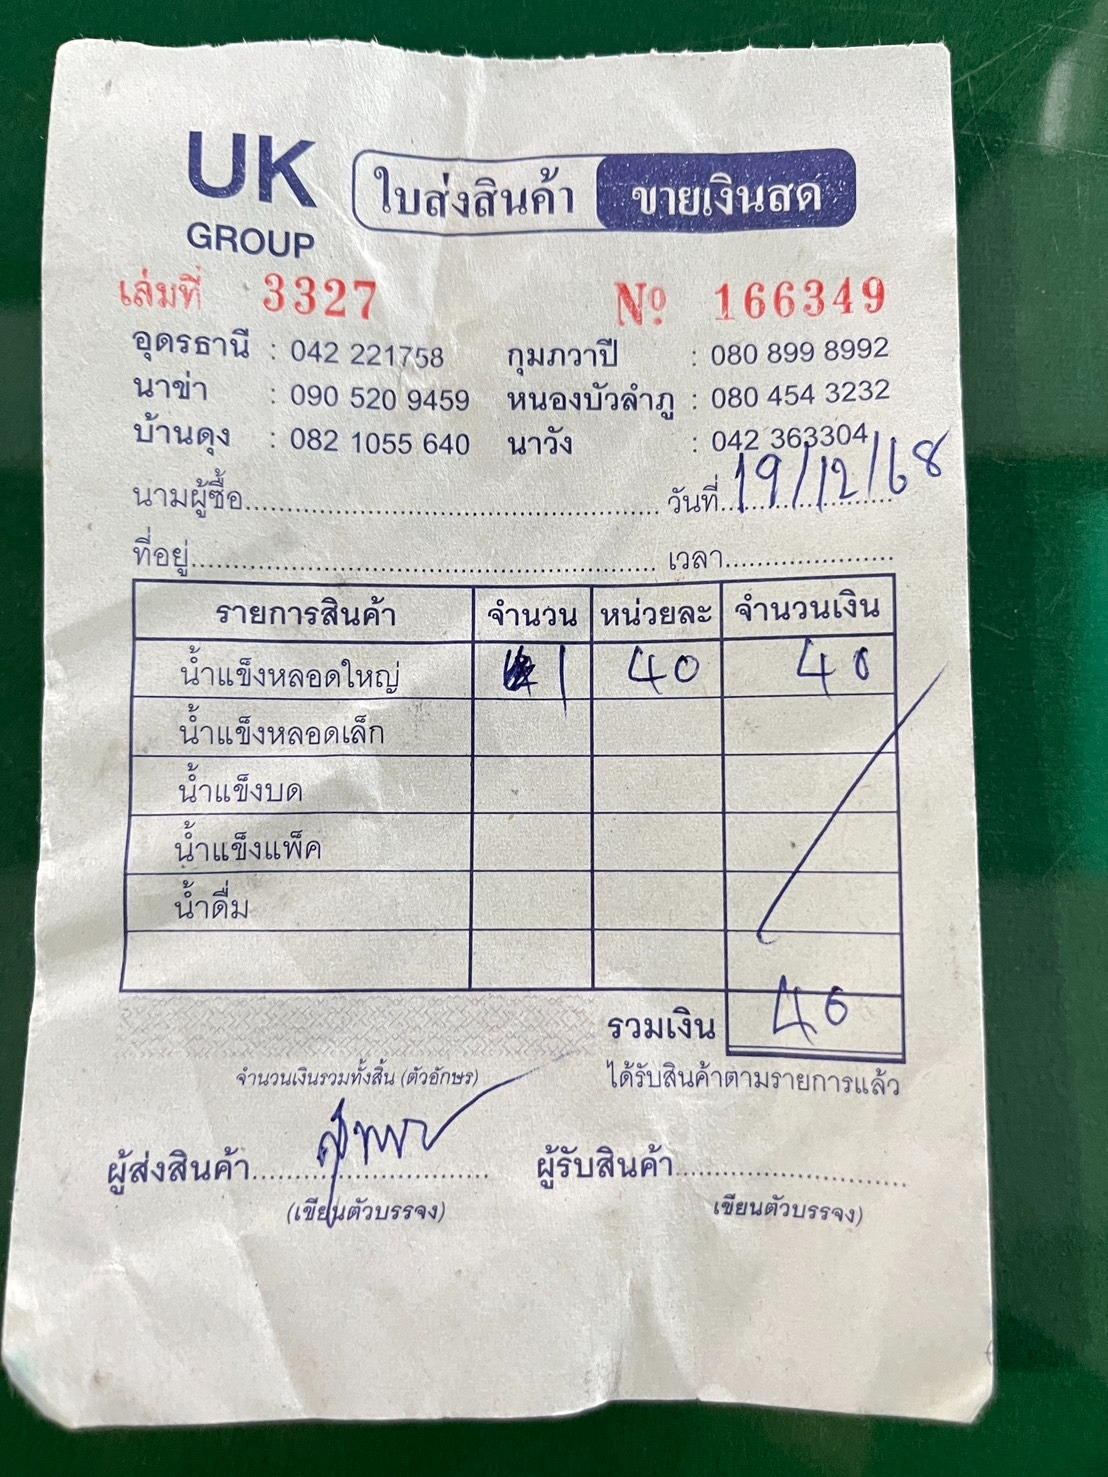 UK
GROUP
ใบส่งสินค้า ขายเงินสด
เล่มที่ 3327 Nº 166349
อุดรธานี : 042 221758 กุมภวาปี : 080 899 8992
นาข่า : 090 520 9459 หนองบัวลำภู : 080 454 3232
บ้านดุง : 082 1055 640 นาวัง : 042 363304
นามผู้ซื้อ วันที่ 19/12/68
ที่อยู่ เวลา
รายการสินค้า จำนวน หน่วยละ จำนวนเงิน
น้ำแข็งหลอดใหญ่ 1 40 40
น้ำแข็งหลอดเล็ก
น้ำแข็งบด
น้ำแข็งแพ็ค
น้ำดื่ม
รวมเงิน 40
จำนวนเงินรวมทั้งสิ้น (ตัวอักษร) ได้รับสินค้าตามรายการแล้ว
ผู้ส่งสินค้า ผู้รับสินค้า
(เขียนตัวบรรจง) เขียนตัวบรรจง)